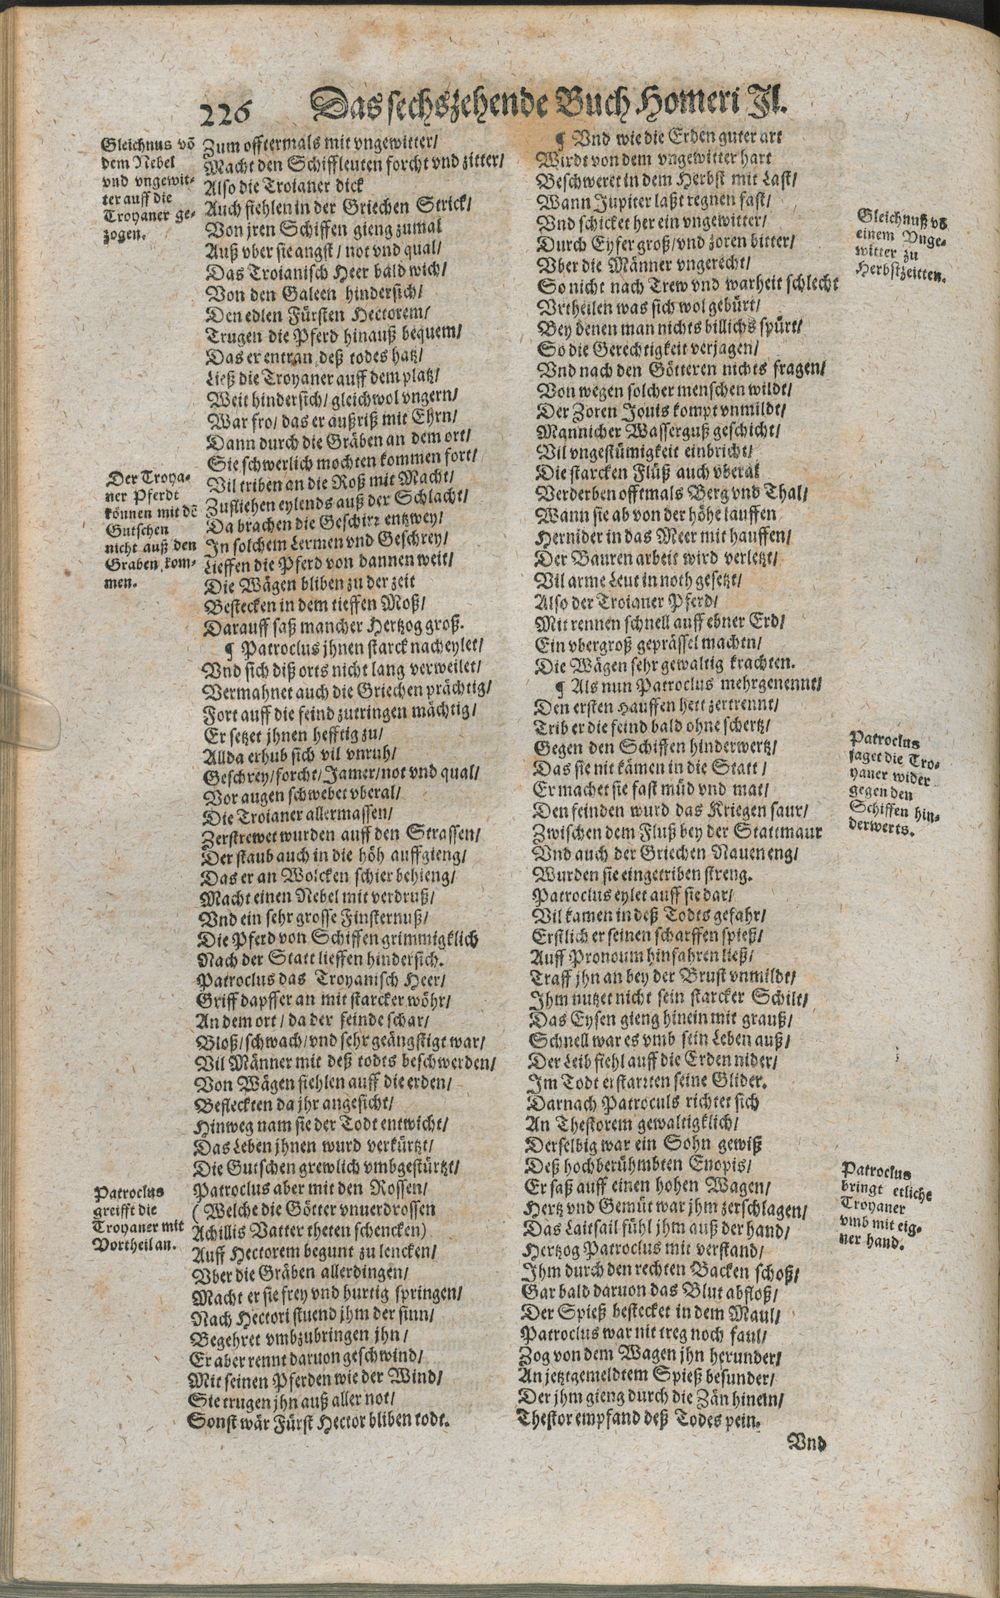 226
Das sechszehende Buch Homeri Jl.
Gleichnus võ
dem Nebel
vnd vngewit-
ter auff die
Troyaner ge-
zogen.
Zum offtermals mit vngewitter/
Macht den Schiffleuten forcht vnd zitter/
Also die Troianer dick
Auch fiehlen in der Griechen Strick/
Von jren Schiffen gieng zumal
Auß vber sie angst/ not vnd qual/
Das Troianisch Heer bald wich/
Von den Galeen hindersich/
Den edlen Fürsten Hectorem/
Trugen die Pferd hinauß bequem/
Das er entran deß todes hatz/
Ließ die Troyaner auff dem platz/
Weit hindersich/ gleichwol vngern/
War fro/ das er außriß mit Ehrn/
Dann durch die Gräben an dem ort/
Sie schwerlich mochten kommen fort/
Der Troya-
ner Pferdt
können mit dẽ
Gutschen
nicht auß den
Graben kom-
men.
Vil triben an die Roß mit Macht/
Zufliehen eylends auß der Schlacht/
Da brachen die Geschirr entzwey/
In solchem Lermen vnd Geschrey/
Lieffen die Pferd von dannen weit/
Die Wägen bliben zu der zeit
Bestecken in dem tieffen Moß/
Darauff saß mancher Hertzog groß.
¶ Patroclus jhnen starck nacheylet/
Vnd sich diß orts nicht lang verweilet/
Vermahnet auch die Griechen prächtig/
Fort auff die feind zutringen mächtig/
Er setzet jhnen hefftig zu/
Allda erhub sich vil vnruh/
Geschrey/ forcht/ Jamer/ not vnd qual/
Vor augen schwebet vberal/
Die Troianer allermassen/
Zerstrewet wurden auff den Strassen/
Der staub auch in die höh auffgieng/
Das er an Wolcken schier behieng/
Macht einen Nebel mit verdruß/
Vnd ein sehr grosse Finsternuß/
Die Pferd von Schiffen grimmigklich
Nach der Statt lieffen hindersich.
Patroclus das Troyanisch Heer/
Griff dapffer an mit starcker wöhr/
An dem ort/ da der feinde schar/
Bloß/ schwach/ vnd sehr geängstigt war/
Vil Männer mit deß todts beschwerden/
Von Wägen fiehlen auff die erden/
Befleckten da jhr angesicht/
Hinweg nam sie der Todt entwicht/
Das Leben jhnen wurd verkürtzt/
Die Gutschen grewlich vmbgestürtzt/
Patroclus
greifft die
Troyaner mit
Vortheil an.
Patroclus aber mit den Rossen/
(Welche die Götter vnuerdrossen
Achillis Vatter theten schencken)
Auff Hectorem begunt zu lencken/
Vber die Gräben allerdingen/
Macht er sie frey vnd hurtig springen/
Nach Hectori stuend jhm der sinn/
Begehret vmbzubringen jhn/
Er aber rennt daruon geschwind/
Mit seinen Pferden wie der Wind/
Sie trugen jhn auß aller not/
Sonst wär Fürst Hector bliben todt.
¶ Vnd wie die Erden guter art
Wirdt von dem vngewitter hart
Beschweret in dem Herbst mit Last/
Wann Jupiter laßt regnen fast/
Vnd schicket her ein vngewitter/
Durch Eyfer groß/ vnd zoren bitter/
Vber die Männer vngerecht/
So nicht nach Trew vnd warheit schlecht
Vrtheilen was sich wol gebürt/
Bey denen man nichts billichs spürt/
So die Gerechtigkeit verjagen/
Vnd nach den Götteren nichts fragen/
Von wegen solcher menschen wildt/
Der Zoren Jouis kompt vnmildt/
Mannicher Wasserguß geschicht/
Vil vngestümigkeit einbricht/
Die starcken Flüß auch vberal
Verderben offtmals Berg vnd Thal/
Wann sie ab von der höhe lauffen
Hernider in das Meer mit hauffen/
Der Bauren arbeit wird verletzt/
Vil arme Leut in noth gesetzt/
Also der Troianer Pferd/
Mit rennen schnell auff ebner Erd/
Ein vbergroß geprässel machten/
Die Wägen sehr gewaltig krachten.
Gleichnuß võ
einem Vnge-
witter zu
Herbstzeitten.
¶ Als nun Patroclus mehrgenennt/
Den ersten Hauffen hett zertrennt/
Trib er die feind bald ohne schertz/
Gegen den Schiffen hinderwertz/
Das sie nit kämen in die Statt/
Er machet sie fast müd vnd mat/
Den feinden wurd das Kriegen saur/
Zwischen dem Fluß bey der Stattmaur
Vnd auch der Griechen Nauen eng/
Wurden sie eingetriben streng.
Patroclus
jaget die Tro-
yaner wider
gegen den
Schiffen hin-
derwerts.
Patroclus eylet auff sie dar/
Vil kamen in deß Todts gefahr/
Erstlich er seinen scharffen spieß/
Auff Pronoum hinfahren ließ/
Traff jhn an bey der Brust vnmildt/
Jhm nutzet nicht sein starcker Schilt/
Das Eysen gieng hinein mit grauß/
Schnell war es vmb sein Leben auß/
Der Leib fiehl auff die Erden nider/
Im Todt erstarrten seine Glider.
Darnach Patroculs richtet sich
An Thestorem gewaltigklich/
Derselbig war ein Sohn gewiß
Deß hochberühmbten Enopis/
Er saß auff einen hohen Wagen/
Hertz vnd Gemüt war jhm zerschlagen/
Das Laitsail fühl jhm auß der hand/
Hertzog Patroclus mit verstand/
Jhm durch den rechten Backen schoß/
Gar bald daruon das Blut abfloß/
Der Spieß bestecket in dem Maul/
Patroclus war nit treg noch faul/
Zog von dem Wagen jhn herunder/
An jetztgemeldtem Spieß besunder/
Der jhm gieng durch die Zän hinein/
Thestor empfand deß Todes pein.
Patroclus
bringt etliche
Troyaner
vmb mit eig-
ner hand.
Vnd